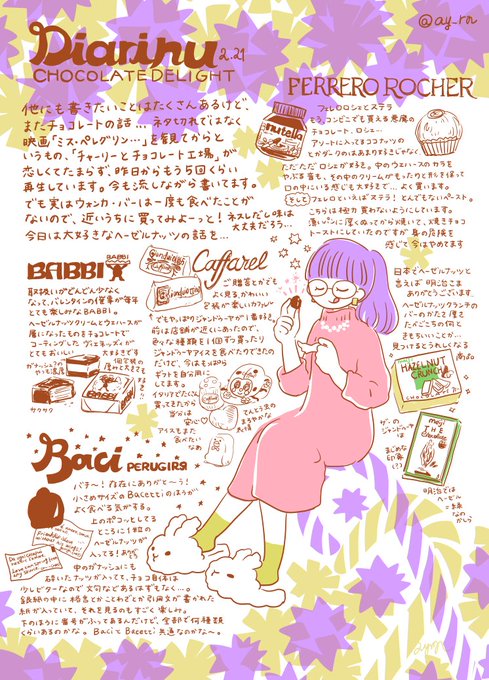 @ay_rn
Diarinu 2.21
CHOCOLATE DELIGHT
他にも書きたいことはたくさんあるけど、
またチョコレートの話…ネタ切れではなく
映画「ミス・ペレグリン…」を観てからと
いうもの、「チャーリーとチョコレート工場」が
恋しくてたまらず、昨日からもう5回くらい
再生しています。今も流しながら書いてます。
でも実はウォンカ・バーは一度も食べたことが
ないので、近いうちに買ってみよーっと!ネズレだし味は
大丈夫だろう…
今日は大好きなヘーゼルナッツの話を…
FERRERO ROCHER
nutella
フェレロロシェとヌテラ
そう、コンビニでも買える悪魔の
チョコレート、ロシェ…
ただただロシェが好き。中のウエハースのカラを
やぶる音も、その中のクリームが
口の中にいる感じも大好きで…よく買います。
そしてフェレロといえばヌテラ!とんでもないペースト。
こちらは極力買わないようにしています。
薄いパンに厚くぬってから焼いて、焼きチョコ
トーストにしていたのですが身の危険を
感じて今はやめてます
BABBI
BABBI
取扱いがどんどん少なく
なって、バレンタインの催事が毎年
とても楽しみなBABBI。
ヘーゼルナッツクリームとウエハースが
層になったものをチョコレートで
コーティングした ヴィエネッズィが
とてもおいしい
大好きです
サクサク
BABBI
Caffarel
Gianduia
ご贈答とかでも
よく見る、かわいい
でもやっぱりジャンドゥーヤが1番好き。
前は店舗が近くにあったので、
色々な種類を1個ずつ買ったり
ジャンドゥーヤアイスを食べたりできたの
だけど、今はもっぱら
ギフトを自分用に
してます。
イタリアでたくさん
買ってきたから
当分は
安心♡
アイスもまた
食べたい
なあ
てんとう虫の
まろやかな
表情
日本でヘーゼルナッツと
言えば 明治さま
ありがとうございます
ヘーゼルナッツクランチの
バーのかたて厚さ
たべごこちの何と
きもちいいことか…
見つけるとうれしくなる
商品
HAZELNUT
CRUNCH
meiji
THE
Chocolate
ザ・の
ジャンドゥーヤ
は
まじめな
印象
(?)
明治では
ヘーゼル
一本珠
なの
かしら
Baci PERUGINA
バチ〜!存在にありがと〜う!
小さめサイズのBacettiのほうが
よく食べる気がする。
上のポコッとしてる
ところに1粒の
ヘーゼルナッツが
入ってる!
中のガナッシュにも
砕いたナッツが入ってて、チョコ自体は
少しビターなので文句などあるはずもなく…。
銀紙の中に格言とかことわざとか引用文が書かれた
紙が入っていて、それを見るのもすごく楽しみ。
下のほうに番号がふってあるんだけど、全部で何種類
くらいあるのかな。BaciとBacetti共通なのかな〜。